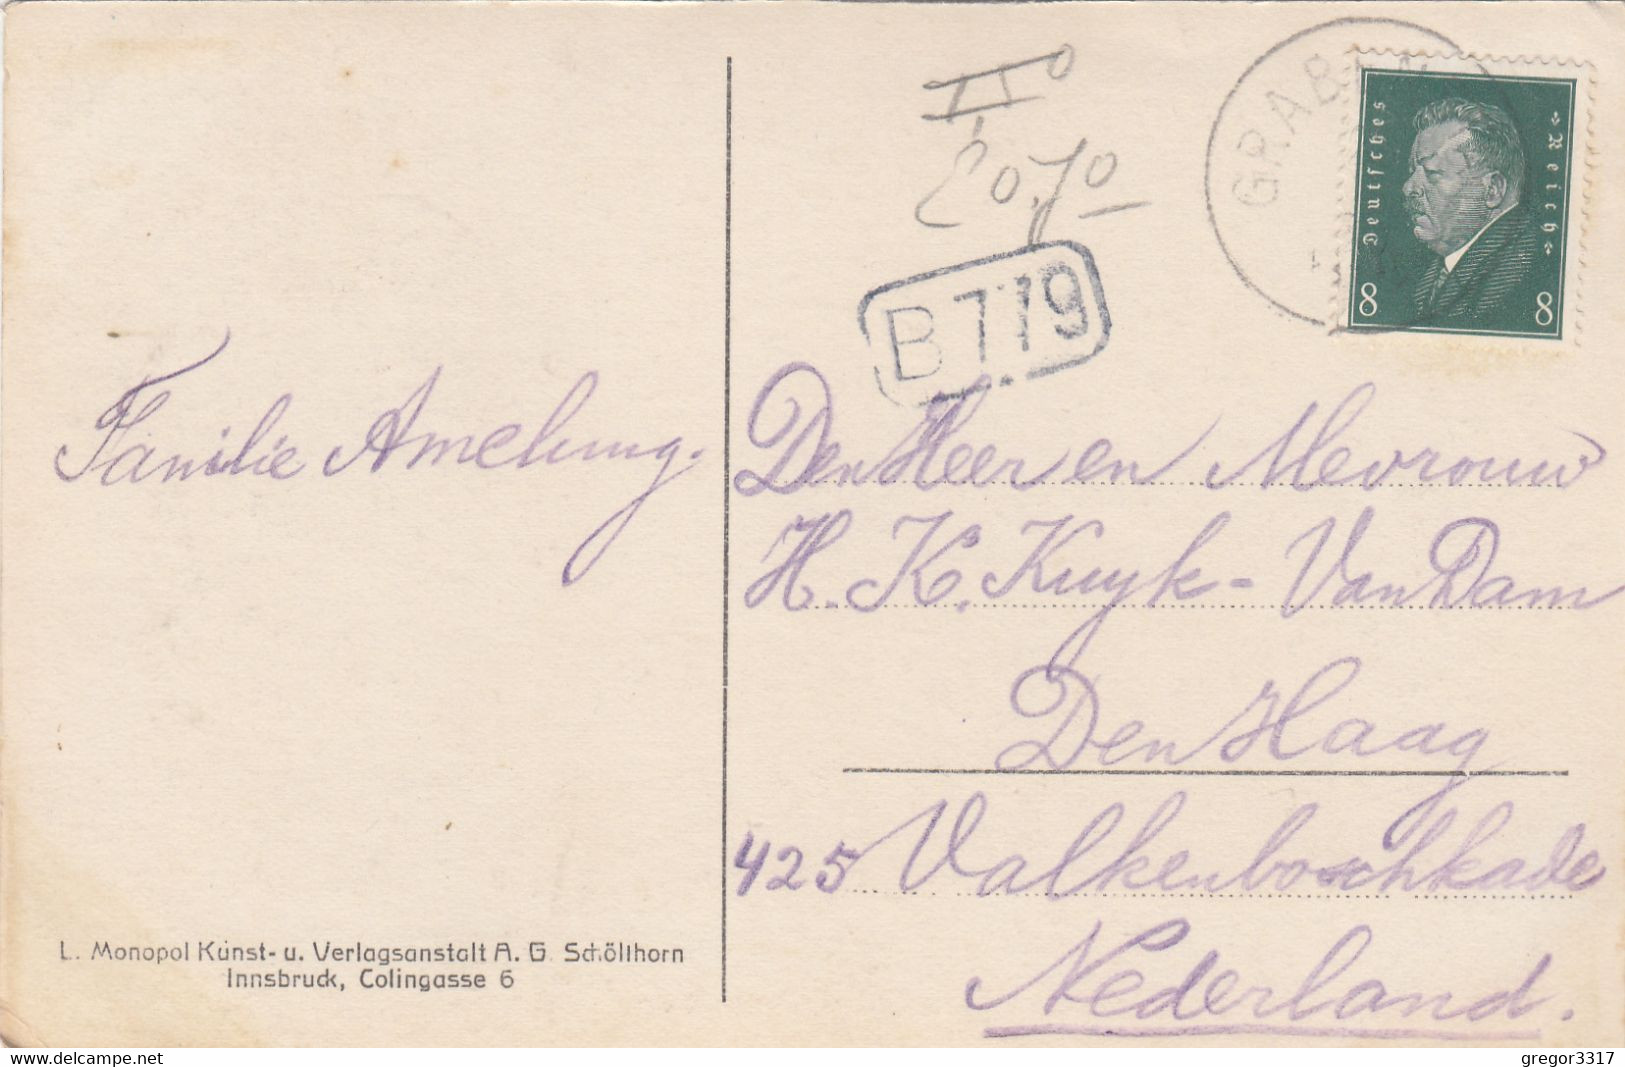 Familie Amelung.
L. Monopol Kunst- u. Verlagsanstalt A. G. Schöllhorn
Innsbruck, Colingasse 6
II°
0,70
B 779
GRABEN
Deutsches Reich
8 8
Den Heer en Mevrouw
H. K. Kuyk - Van Dam
Den Haag
425 Valkenboschkade
Nederland.
gregor3317